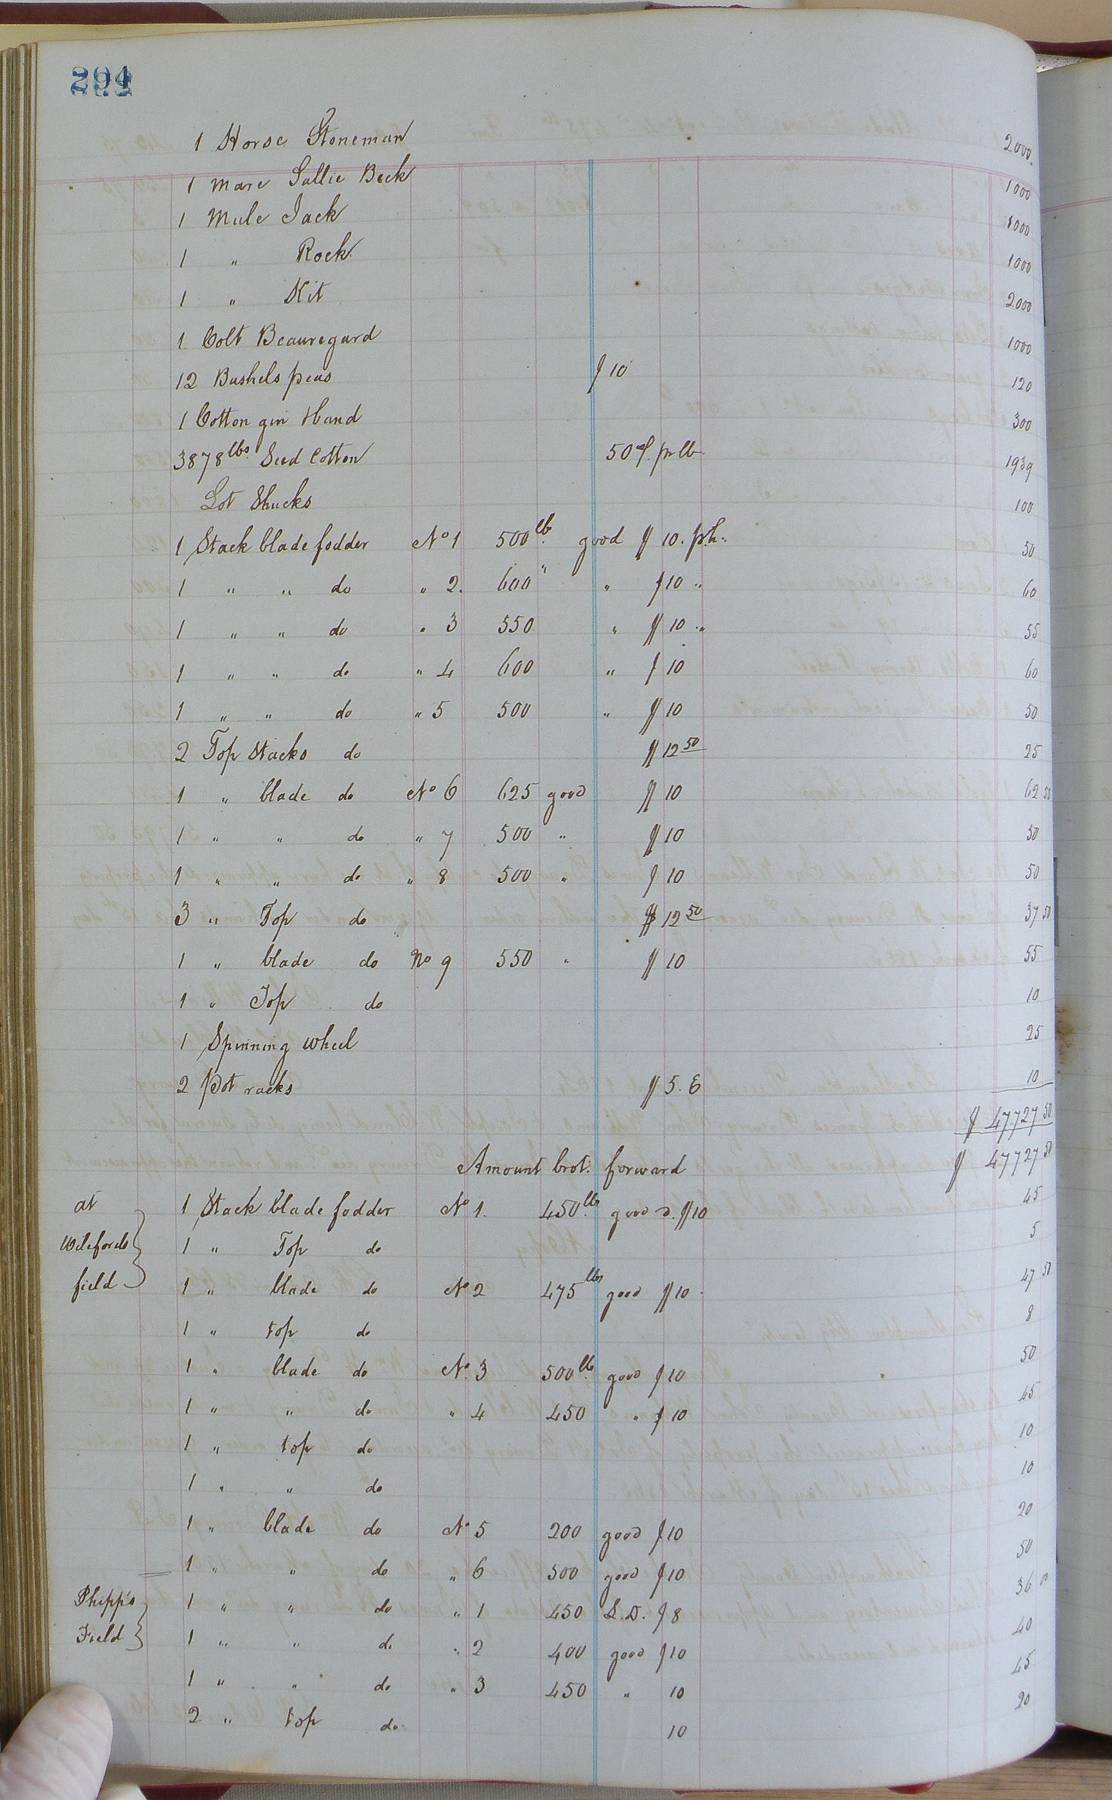 294
1 Horse Stoneman 2000.
1 Mare Sallie Beck 1000
1 Mule Jack 1000
1 " Rock. 1000
1 " Kit 2000
1 Colt Beauregard 1000
12 Bushels peas $10 120
1 Cotton gin Hand 300
3878 lbs. Seed Cotton 50¢. pr lb 1939
Lot Shucks 100
1 Stack blade fodder No 1 500 lb. good $10. prh. 50
1 " " do " 2. 600 " " $10 " 60
1 " " do " 3 550 " $10 " 55
1 " " do " 4 600 " $10 60
1 " " do " 5 500 " $10 50
2 Top Stacks do $12 50 25
1 " blade do No 6 625 good $10 62 50
1 " " do " 7 500 " $10 50
1 " " do " 8 500 " $10 50
3 " Top do $12 50 37 50
1 " blade do No 9 550 " $10 55
1 " Top do 10
1 Spinning wheel 25
2 Pot racks $5. E 10
$ 47.727 50
Amount brot. forward $ 47727 50
at 1 Stack blade fodder No 1. 450 lbs good $10 45
1 " Top do 5
field 1 " blade do No 2 475 lbs good $10 47 50
1 " top do 8
1 " blade do No. 3 500 lb good $10 50
1 " " do " 4 450 " $10 45
1 " top do 10
1 " " do 10
1 " blade do No 5 200 good $10 20
1 " " do " 6 500 good $10 50
Phipps 1 " " do " 1 450 S.D. $8 36
Field 1 " " do " 2 400 good $10 40
1 " " do " 3 450 " 10 45
2 " top do. 10 20